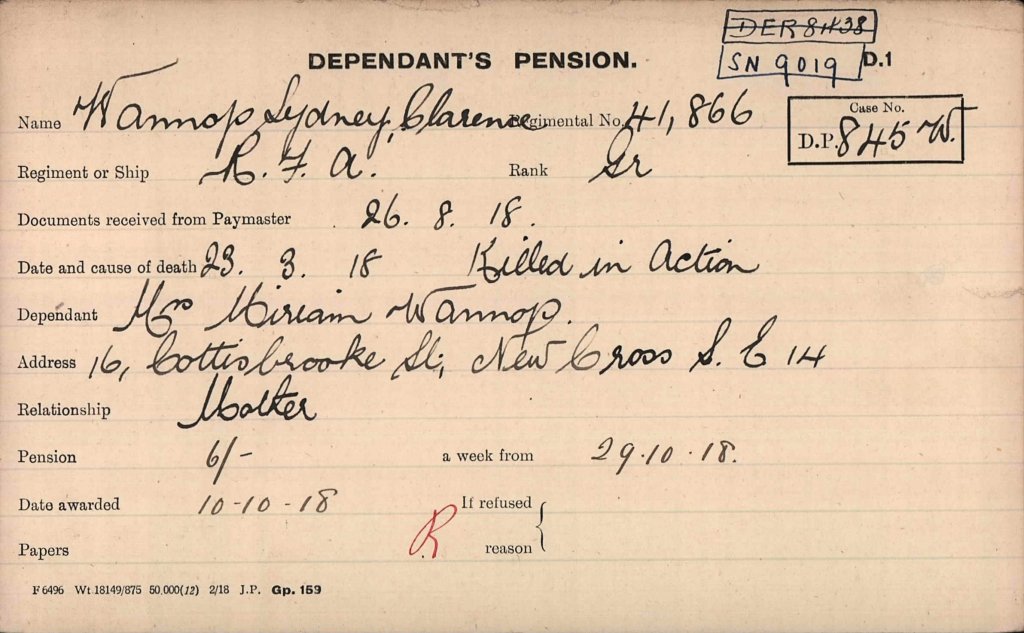 DER 81438
DEPENDANT'S PENSION. SN 9019 D.1
Name Wannop Sydney, Clarence Regimental No. 41,866
Case No.
D.P. 845 W.
Regiment or Ship R. F. A. Rank Gr
Documents received from Paymaster 26. 8. 18.
Date and cause of death 23. 3. 18 Killed in Action
Dependant Mrs Miriam Wannop.
Address 16, Cottisbrooke St; New Cross S. E 14
Relationship Mother
Pension 6/- a week from 29.10.18.
Date awarded 10-10-18 If refused
Papers R reason
F 6496 Wt. 18149/875 50,000(12) 2/18 J.P. Gp. 159